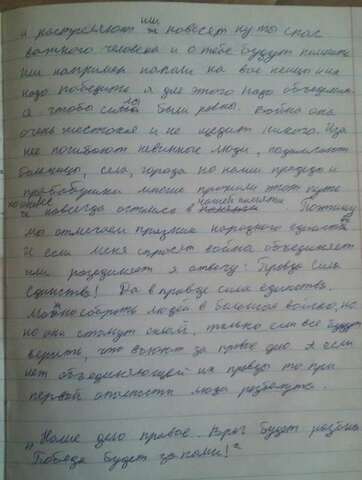 и расстреляют или повесят ну ты спас
важного человека и о тебе будут помнить
или например напали на вас немцы и их
надо победить я для этого надо объединить
а чтобы силы были равны. Война она
очень жестокая и не щедит никого. Из за
нее погибают невинные люди, подрывают
больницы, села, города но наши прадеды и
прабабушки многие прошли этот путь
и навсегда остались в нашей памяти. Поэтому
мы отмечаем праздник народного единства
И если меня спросят война объединяет
или разъединяет я отвечу: Правда Сила
Единства! Да в правде сила единства.
Можно собрать людей в большое войско, но
но они станут силой, только если все будут
верить, что воюют за правое дело А если
нет объединяющей их правды то при
первой опасности люди разбегутся.
„Наше дело правое. Враг будет разбит
Победа будет за нами!"